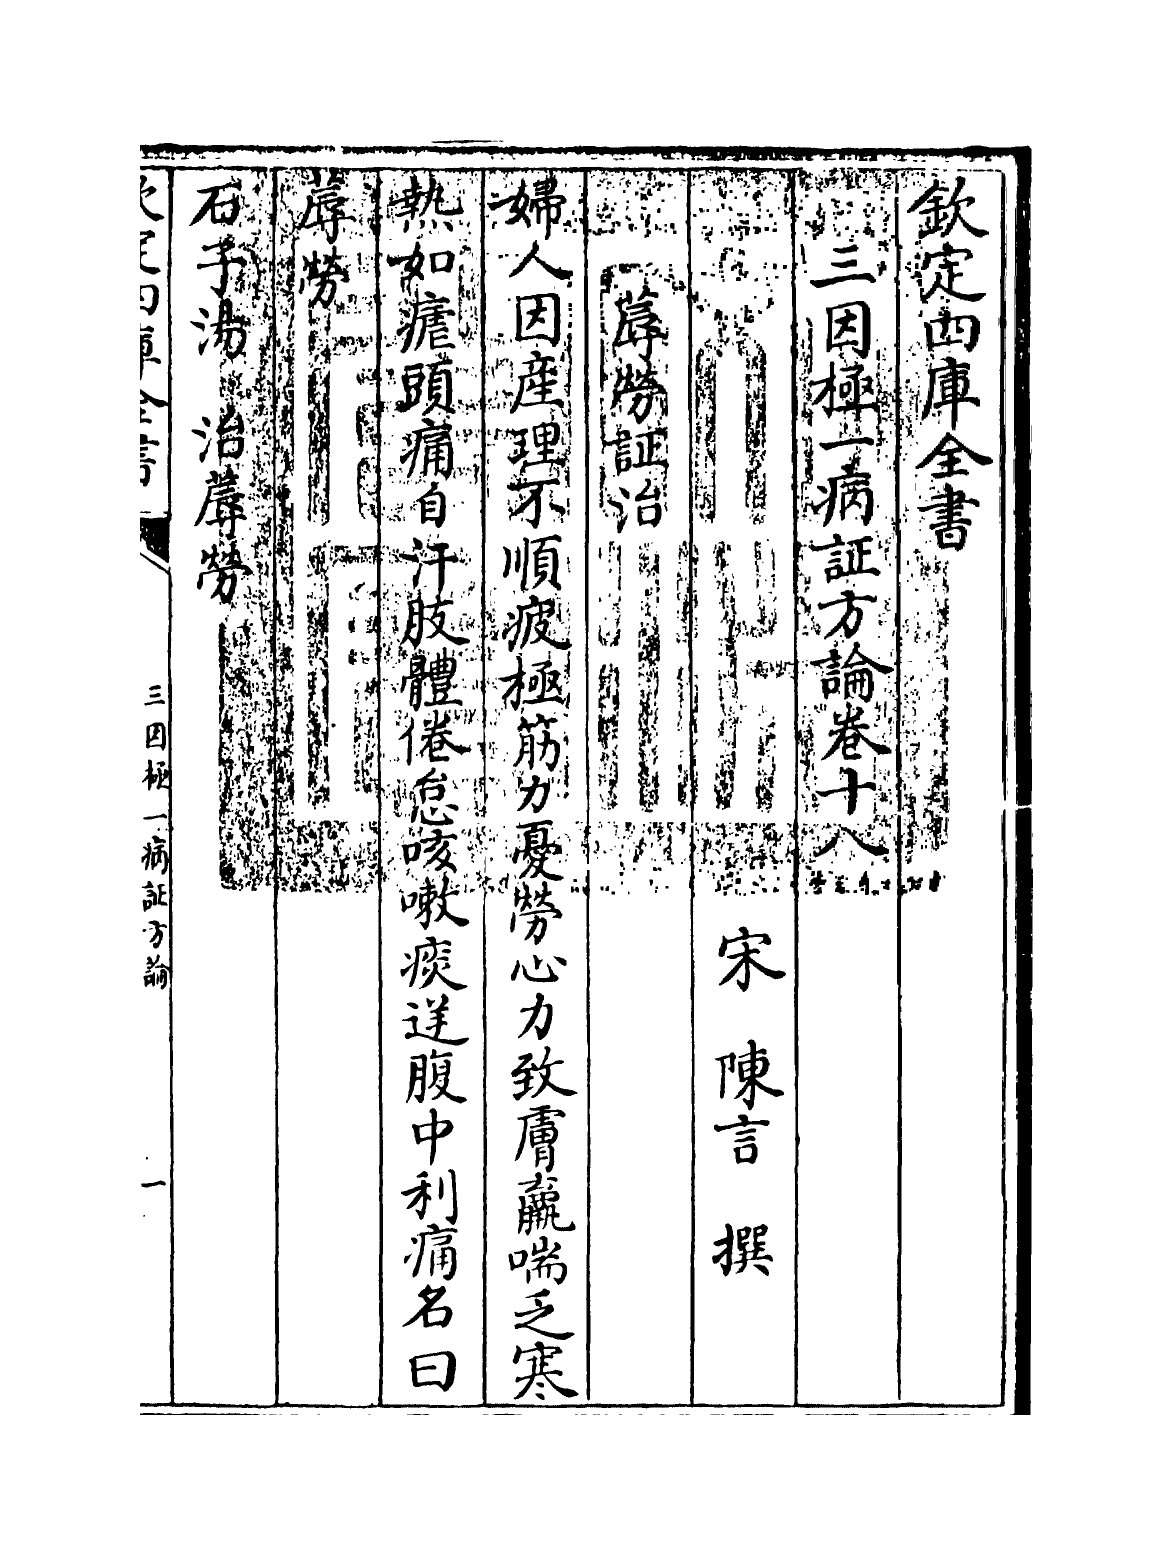 欽定四庫全書
三因極一病証方論卷十八
宋 陳言 撰
蓐勞証治
婦人因産理不順疲極筋力憂勞心力致虛羸喘乏寒
熱如瘧頭痛自汗肢體倦怠咳嗽痰逆腹中利痛名曰
蓐勞
石子湯 治蓐勞
欽定四庫全書
三因極一病証方論
一